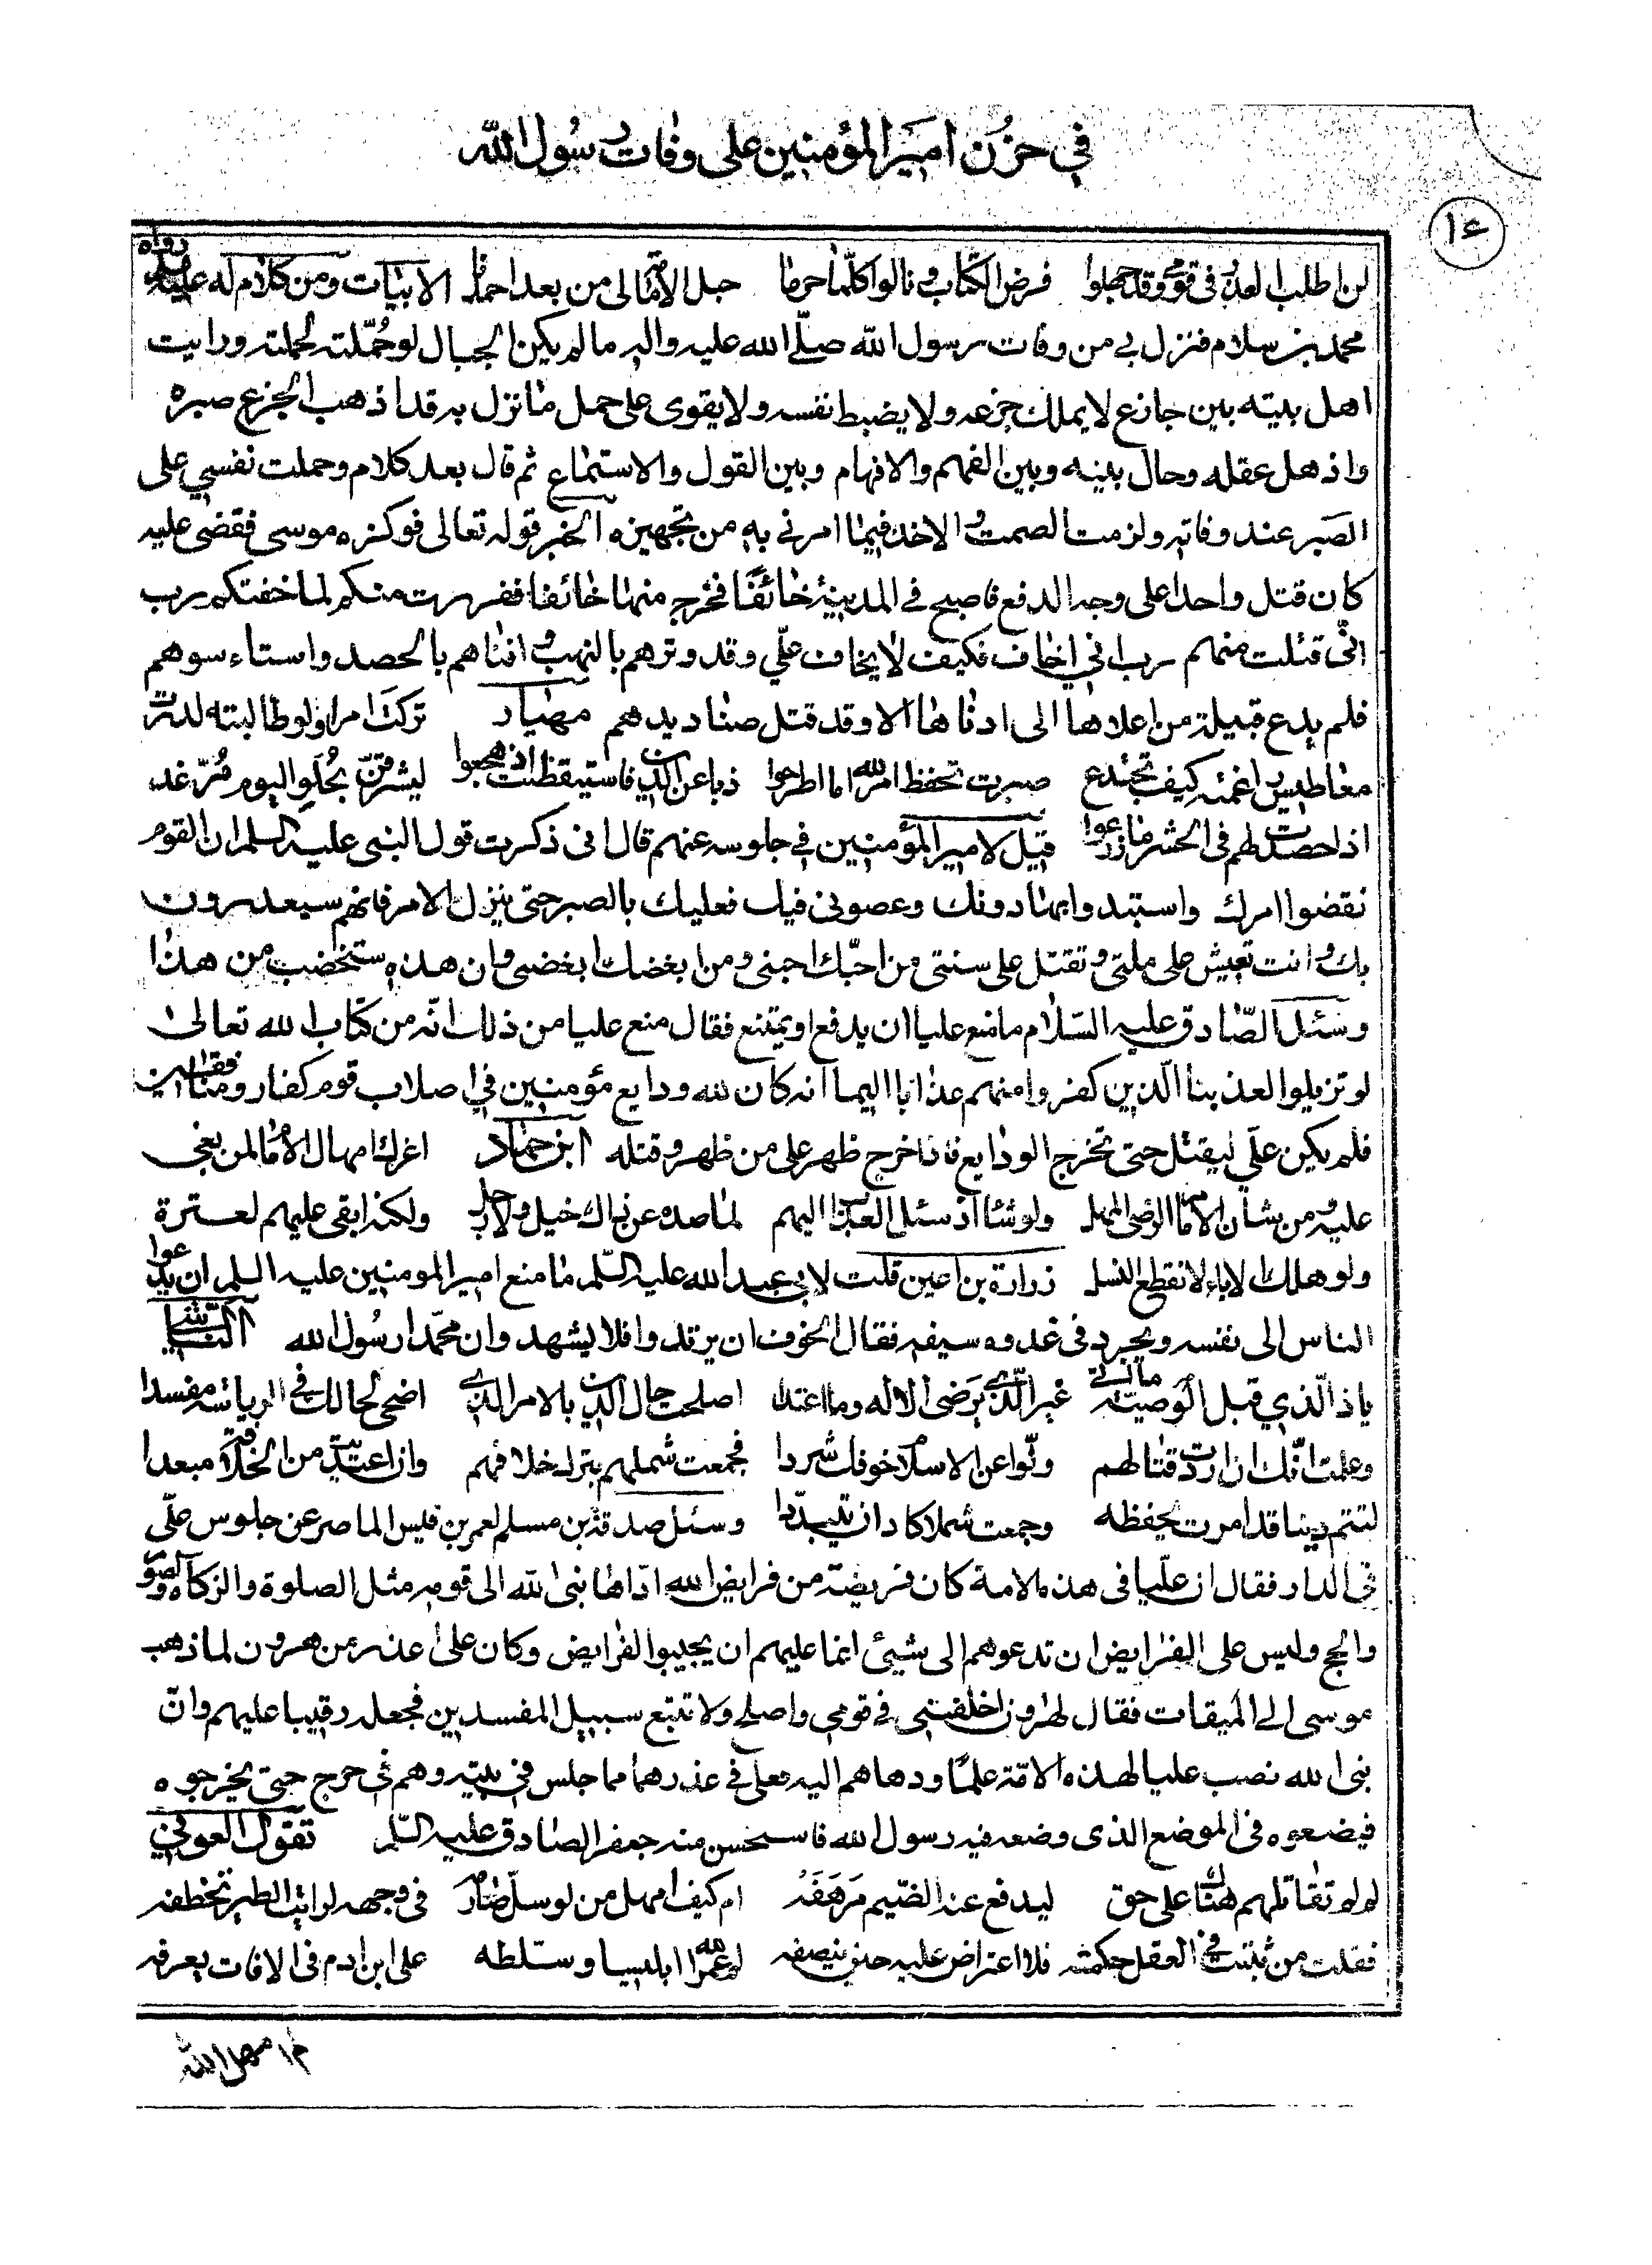 في حزن امير المؤمنين على وفات رسول الله
١٤
لن اطلب العذر في قومي وقد جهلوا فرض الكتاب ونالوا كلما حرما حبل الامامة لي من بعد احمدنا الابيات ومن كلام له عليه السلم رواه
محمد بن سلام فنزل بي من وفات رسول الله صلّى الله عليه واله ما لم يكن الجبال لو حُمّلته لحملته ورايت
اهل بيته بين جازع لا يملك جزعه ولا يضبط نفسه ولا يقوى على حمل ما نزل به قد اذهب الجزع صبره
واذهل عقله وحال بينه وبين الفهم والافهام وبين القول والاستماع ثم قال بعد كلام وحملت نفسي على
الصبر عند وفاته ولزمت الصمت والاخذ فيما امرني به من تجهيزه الخبر قوله تعالى فوكزه موسى فقضى عليه
كان قتل واحدا على وجه الدفع فاصبح في المدينة خائفًا فخرج منها خائفا ففررت منكم لما خفتكم رب
انّى قتلت منهم رب اني اخاف فكيف لا يخاف علّي وقد وترهم بالنهب وافناهم بالحصد واستاء سوهم
فلم يدع قبيلة من اعلاها الى ادناها الا وقد قتل صناديدهم مهيار تركتَ امرا ولو طالبته لدرت
معاطيس راغمته كيف تجتدع صبرت تحفظ امر الله ما اطرحوا ذبا عن الدين فاستيقظت اذ هجعوا ليشرقن بحُلو اليوم مُرّ غد
اذا حصدت لهم في الحشر ما زرعوا قيل لامير المؤمنين في جلوسه عنهم قال انى ذكرت قول النبى عليه السلم ان القوم
نقضوا امرك واستبدوا بها دونك وعصونى فيك فعليك بالصبر حتى ينزل الامر فانهم سيغدرون
بك وانت تعيش على ملتي وتقتل على سنتى من احبّك احبنى ومن ابغضك ابغضني وان هذه ستخضب من هذا
وسئل الصّادق عليه السّلام ما منع عليا ان يدفع او يمتنع فقال منع عليا من ذلك اية من كتاب الله تعالى
لو تزيلوا لعذبنا الّذين كفروا منهم عذابا اليما انه كان لله ودايع مؤمنين في اصلاب قوم كفار ومنافقين
فلم يكن علّي ليقتل حتى تخرج الودايع فاذا خرج ظهر على من ظهر وقتله ابن حماد اغرك امهال الامام لمن بغى
عليه ومن شان الامام الرضى المهل ولو شاء اذ سئل العذاب اليهم لما صده عن ذاك خيل ولا رجل ولكنه ابقى عليهم لعترة
ولو هلك الاباء لانقطع النسل زرارة بن اعين قلت لابي عبد الله عليه السّلم ما منع امير المومنين عليه السلم ان يدعوا
الناس الى نفسه ويجرد في عدوه سيفه فقال الخوف ان يرتدوا فلا يشهدوا ان محمّدا رسُول الله الناشي
يا ذا الّذي قبل الوصيّة ما اتى غير الذي يرضى الاله وما اعتدا اصلحت حال الدين بالامر الذي اضحى لحالك في الرياسة مفسدا
وعلمت انّك ان اردت قتالهم ولّوا عن الاسلام خوفك شردا فجمعت شملهم بترك خلافهم وان اعتديت من الخلافة مبعدا
لتتم دينا قد امرت بحفظه وجمعت شملا كاد ان يتبدّدا وسئل صدقة بن مسلم لعمر بن قيس الماصر عن جلوس علّى
في الدار فقال ان عليا في هذه الامة كان فريضة من فرايض الله ادّاها نبى الله الى قومه مثل الصلوة والزكاة والصوم
والحج وليس على الفرايض ان تدعوهم الى شيئ انما عليهم ان يجيبوا الفرايض وكان على اعذر من هرون لما ذهب
موسى الى الميقات فقال لهرون اخلفني في قومي واصلح ولا تتبع سبيل المفسدين فجعله رقيبا عليهم وانّ
نبى الله نصب عليا لهذه الامّة علمًا ودعاهم اليه فعلي في عذر مما جلس في بيته وهم في حرج حتى يخرجوه
فيضعوه في الموضع الذى وضعه فيه رسول الله فاستحسن منه جعفر الصادق عليه السّلم تقول العوني
لو لم تقاتلهم هناك على حق ليدفع عنه الضيم مرهَفَه ام كيف امهل من لو سلّ صارمه في وجهه لرايت الطير تخطفه
فقلت من ثبتت في العقل حكمته فلا اعتراض عليه حين ينصفه لم عمّر الله ابليسا وسلّطه على ابن ادم في الافات يعرفه
لم امهل الله